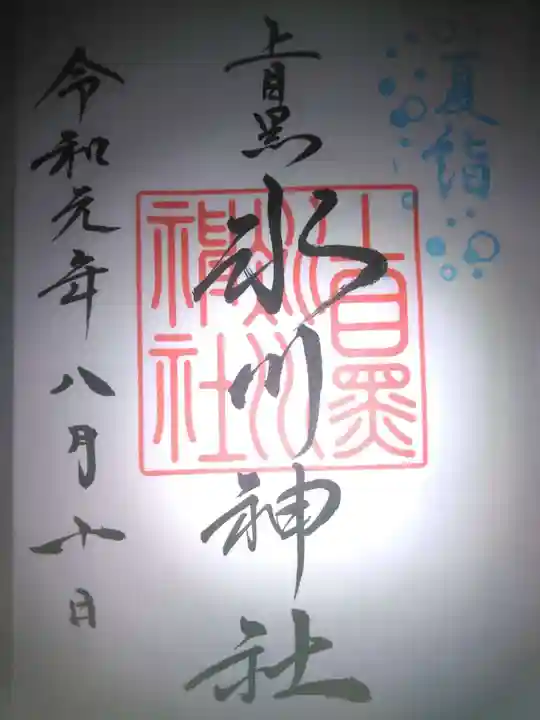 夏詣
上目黒
氷川神社
上目黒
氷川
神社
令和元年八月十日